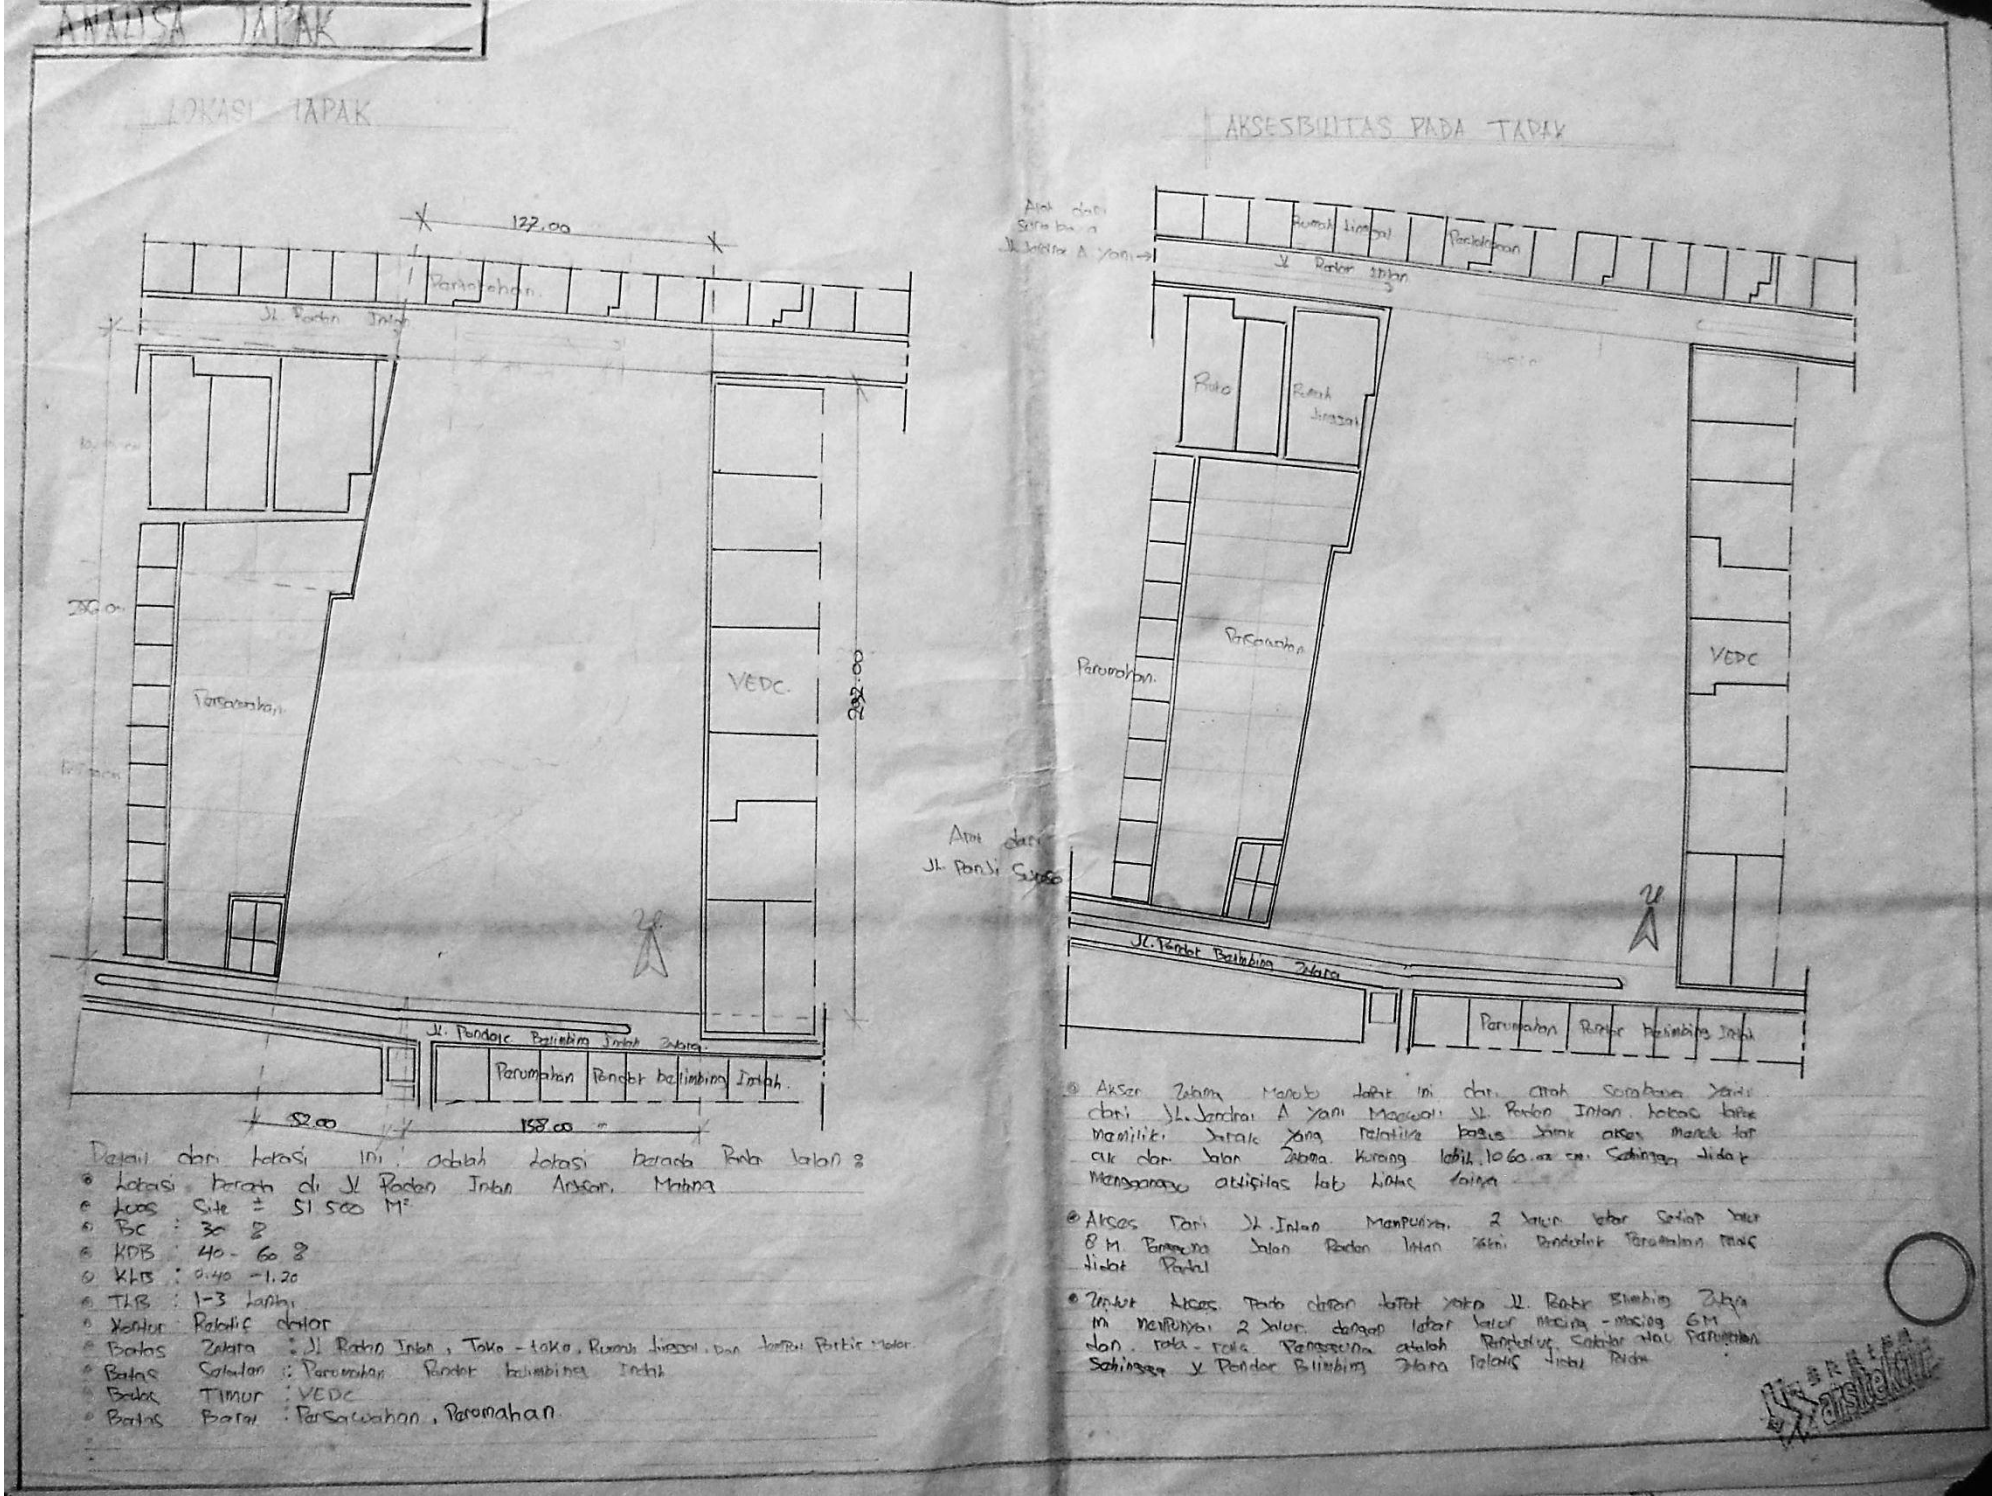 ANALISA TAPAK
LOKASI TAPAK
127.00
Pertokohan.
Jl. Radan Intan
206.00
Persawahan.
VEDC.
292.00
Jl. Pondok Belimbing Indah Utara.
Perumahan Pondok belimbing Indah.
52.00
158.00
Detail dari Lokasi ini, adalah Lokasi berada Pada Jalan :
Lokasi berada di Jl Radan Intan Arjosari, Malang
Luas Site ± 51 500 M²
BC : 30 %
KDB : 40 - 60 %
KLB : 0.40 - 1.20
TLB : 1-3 Lantai
Kontur : Relatif datar
Batas Utara : Jl Radan Intan, Toko - toko, Rumah tinggal, Dan tempat Parkir Motor
Batas Selatan : Perumahan Pondok belimbing Indah
Batas Timur : VEDC
Batas Barat : Persawahan, Perumahan
AKSESBILITAS PADA TAPAK
Arah dari
Surabaya
Jl. Jendral A Yani →
Rumah tinggal
Pertokoan
Jl Radan Intan
Ruko
Rumah
tinggal
Perumahan.
Persawahan
VEDC
Arah dari
Jl. Panji Suroso
U
Jl. Pondok Belimbing Utara
Perumahan Pondok belimbing Indah
Akses Utama Menuju tapak ini dari arah Surabaya yakni
dari Jl. Jendral A Yani Melewati Jl. Radan Intan. Lokasi tapak
memiliki Jarak yang relative bagus Jarak akses menuju tap
ak dari Jalan Utama Kurang lebih 1060.00 Sehingga tidak
mengganggu aktifitas lalu lintas lainya
Akses Dari Jl. Intan Mempunyai 2 Jalur lebar Setiap Jalur
8 M. Pengguna Jalan Radan Intan Penduduk Perumahan
tidak Padat
Untuk Akses Pada tapak yakni Jl. Pondok Blimbing Utara
ini mempunyai 2 Jalur dengan lebar Jalur masing - masing 6 M
dan rata - rata Pengguna adalah Penduduk Sekitar atau Perumahan
Sehingga Jl Pondok Blimbing Utara relatif tidak Padat
arsitektur